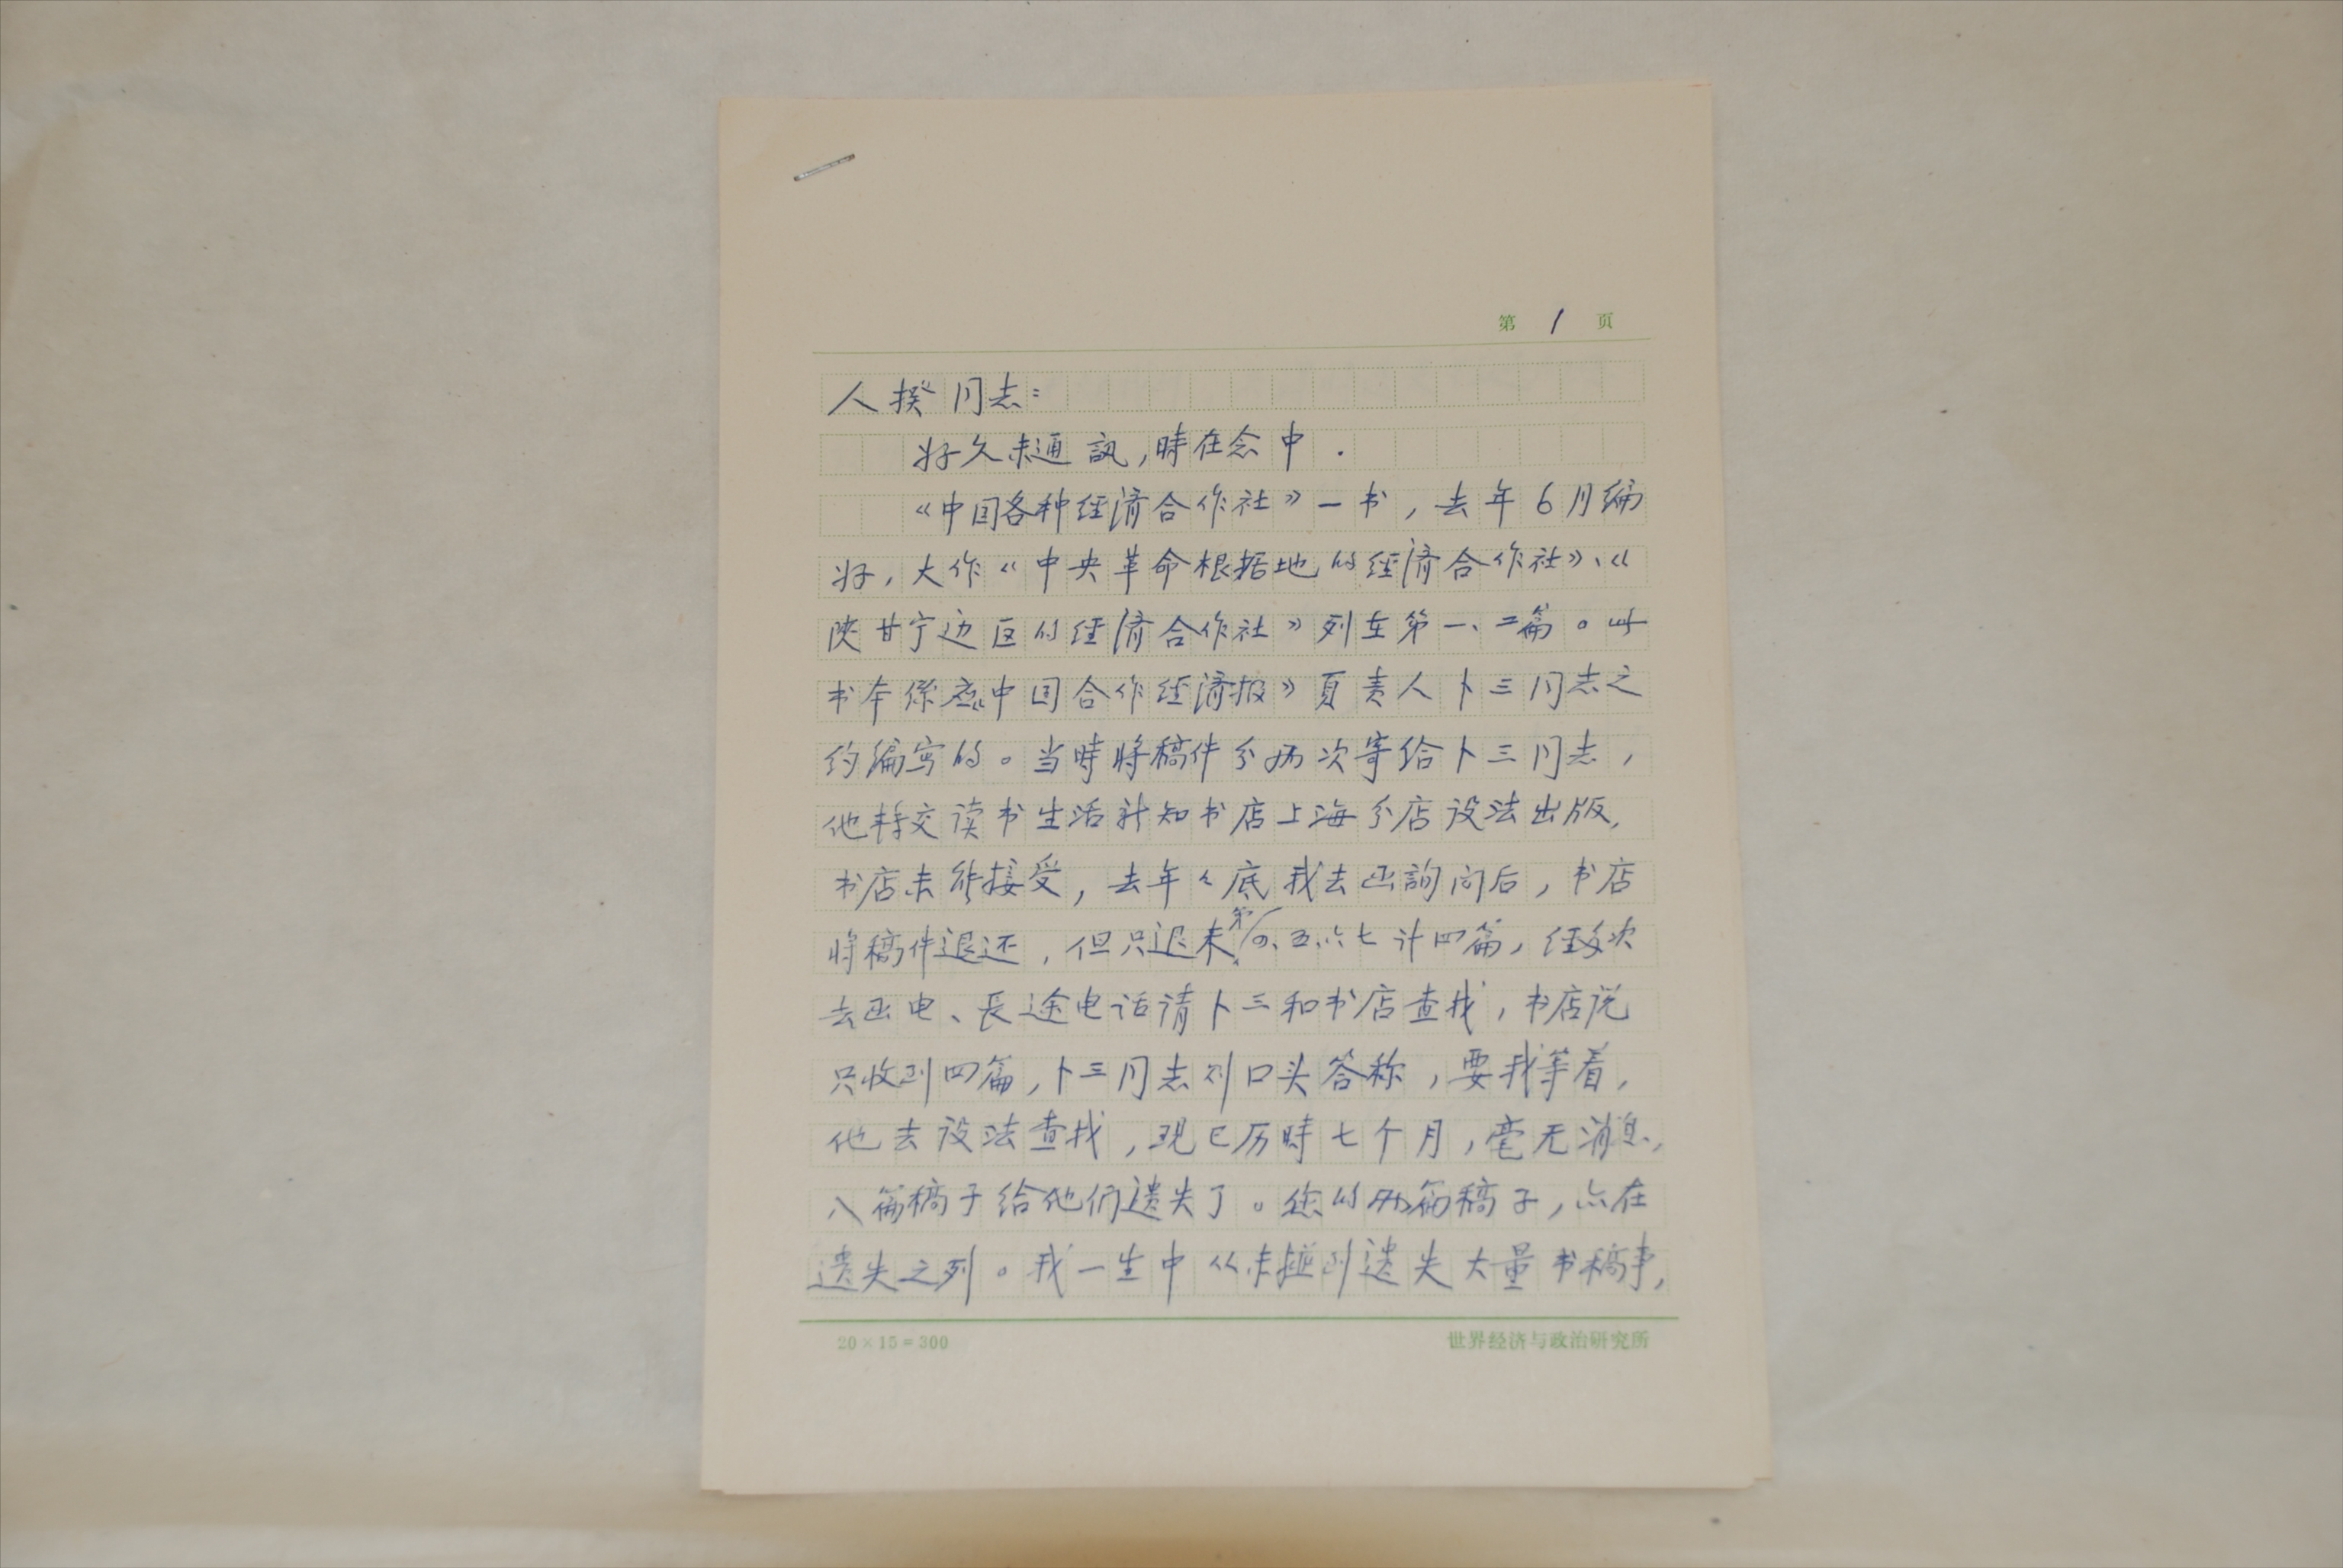 第 1 页
人揆同志:
好久未通訊,時在念中.
《中国各种经济合作社》一书,去年6月编
好,大作《中央革命根据地的经济合作社》、《
陕甘宁边区的经济合作社》列在第一、二篇。此
书本係应《中国合作经济报》負责人卜三同志之
约编写的。当時将稿件分两次寄给卜三同志,
他转交读书生活新知书店上海分店设法出版,
书店未能接受,去年年底我去函詢问后,书店
将稿件退还,但只退来第四、五、六七计四篇,经多次
去函电、長途电话请卜三和书店查找,书店说
只收到四篇,卜三同志则口头答称,要我等着,
他去设法查找,现已历時七个月,毫无消息,
八篇稿子给他们遗失了。您的两篇稿子,亦在
遗失之列。我一生中从未碰到遗失大量书稿事,
20×15=300
世界经济与政治研究所